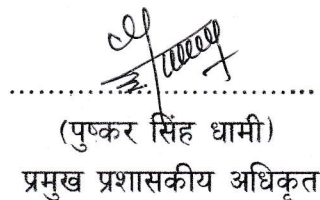 (पुष्कर सिंह धामी)
प्रमुख प्रशासकीय अधिकृत